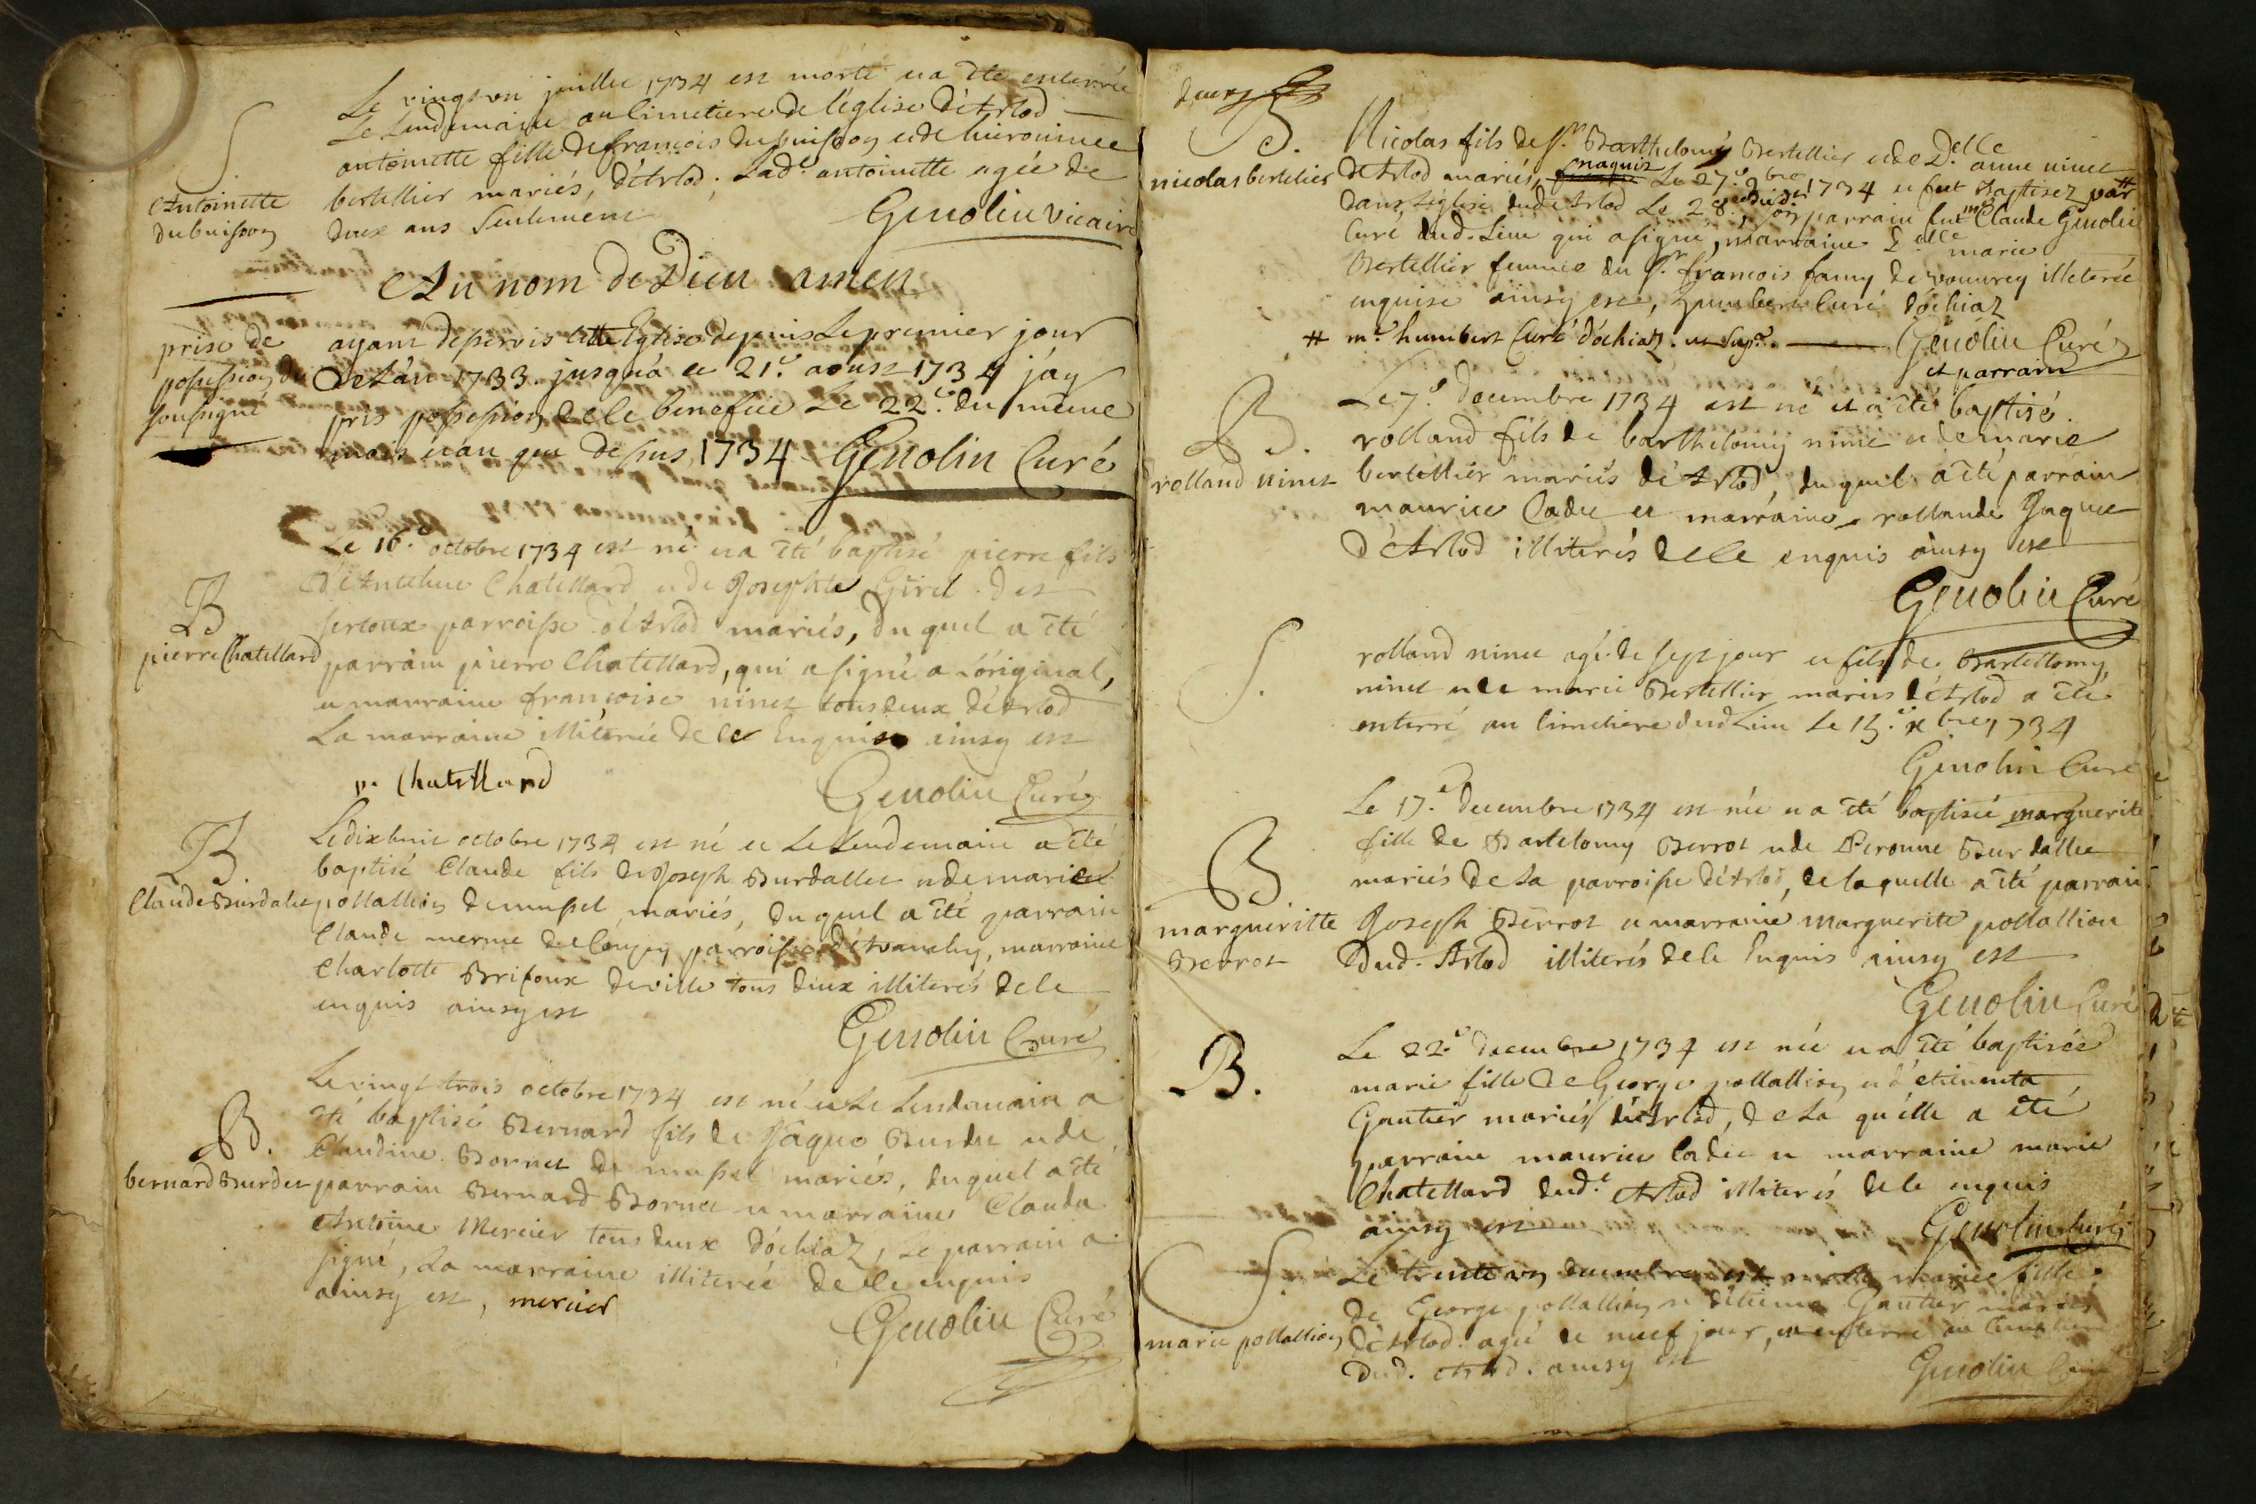 Le vingt un juillet 1734 est morte et a été enterrée
Le Lendemain au Cimetiere de l'église d'Arlod
S
antoinette fille de françois dubuisson et de hieronimee
Antoinette
dubuisson
bertellier mariés, d'Arlod; Lad.e antoinette agée de
deux ans Seulement
Genolin vicaire
Au nom de Dieu amen
prise de
possession du
soussigné
ayant desservis cette Eglise depuis Le premier jour
de L'an 1733. jusqu'à ce 21.e aoust 1734 j'ay
pris possession de ce benefice Le 22.e du même
mois et an que dessus 1734 Genolin Curé
Le 16.e octobre 1734 est né et a été baptisé pierre fils
B
pierre Chatellard
d'Antelme Chatellard et de Josephte Girel des
parroisse d'Arlod mariés, du quel a été
parrain pierre Chatellard, qui a signé a L'original,
et marraine françoise ninet tous deux d'Arlod
La marraine illiterée de ce Enquise ainsy est
p. Chatellard
Genolin Curé
B.
Claude Burdalet
Le dix huit octobre 1734 est né et Le Lendemain a été
baptisé Claude fils de Joseph Burdallet et de marie
pollallion de mussel mariés, du quel a été parrain
Claude merme de parroisse d'Avanchy, marraine
Charlotte Brifoux de ville tous deux illiterés de ce
enquis ainsy est
Genolin Curé
B.
bernard Burdet
Le vingt trois octobre 1734 est né et Le Lendemain a
été baptisé Bernard fils de Jaque Burdet et de
Claudine Bornet de mussel mariés, du quel a été
parrain Bernard Bornet et marraine Clauda
Antoine Mercier tous deux d'ochiaz, Le parrain a
signé, La marraine illiterée de ce enquis
ainsy est, mercier
Genolin Curé
B.
nicolas bertelier
Nicolas fils de Sr. Barthelomy Bertellier et de D.elle anne ninet
d'Arlod mariés, naquit Le 27.e 9bre 1734 et fut Baptisez par #
dans L'église dud. Arlod Le 28.e dud. son parrain fut mre Claude Genolin
Curé dud. Lieu qui a signé, marraine D.elle marie
Bertellier femme du Sr. françois famy de vouvrey illeterée
enquise ainsy est, humbert Curé d'ochiaz
# mre humbert Curé d'ochiaz. ut sup.
Genolin Curé
et parrain
B.
rolland ninet
Le 7.e decembre 1734 est né et a été baptisé
rolland fils de barthelomy ninet et de marie
bertellier mariés d'Arlod du quel a été parrain
maurice Cadet et marraine rollande Jaquet
d'Arlod illiterés de ce enquis ainsy est
Genolin Curé
S.
rolland ninet agé de sept jour et fils de Bartellomy
ninet et de marie Bertellier mariés d'Arlod a été
enterré au Cimetiere dud Lieu Le 15.e xbre 1734
Genolin Curé
B
margueritte
Berrot
Le 17.e decembre 1734 est née et a été baptisée marguerite
fille de Bartelomy Berrot et de Peronne Burdallet
mariés de La parroisse d'Arlod, de laquelle a été parrain
Joseph Berrot et marraine marguerite pollallion
Dud. Arlod illiterés de ce Enquis ainsy est
Genolin Curé
B.
Le 22.e decembre 1734 est née et a été baptisée
marie fille de George pollallion et d'etiennenta
Gautier mariés d'Arlod, de La qu'elle a été
parrain maurice Cadet et marraine marie
Chatellard dud.t Arlod illiterés de ce enquis
ainsy est
Genolin Curé
S.
marie pollallion
Le trente un decembre est morte mariee fille
de George pollallion et d'étienne Gautier mariés
d'Arlod. agée de neuf jour, et enterré au Cimetiere
Dud. Arlod. ainsy est
Genolin Curé